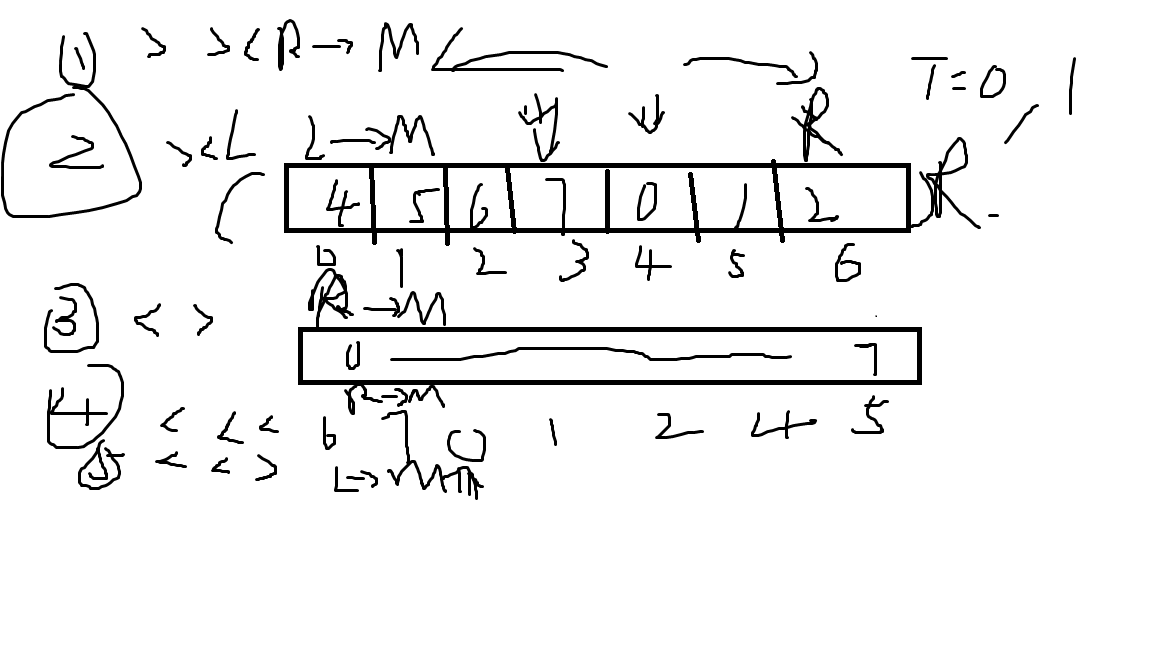 ① > > < R → M
T = 0 , 1
2 > < L L → M R
4 5 6 7 0 1 2 R
0 1 2 3 4 5 6
③ < > R → M
0 7
R → M
④ < < < 6 7 0 1 2 4 5
⑤ < < > L → M